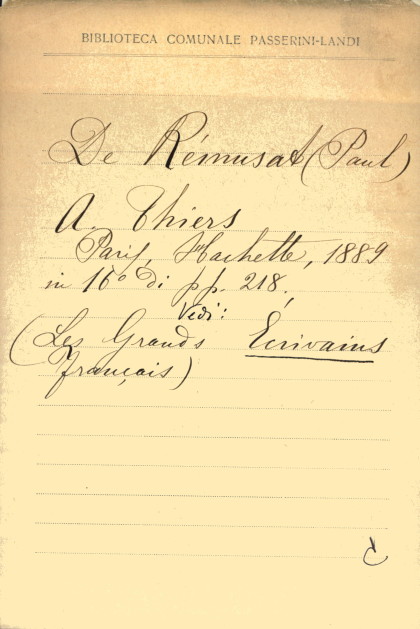 BIBLIOTECA COMUNALE PASSERINI-LANDI
De Rémusat (Paul)
A. Thiers
Paris, Hachette, 1889
in 16° di pp. 218.
Vedi:
(Les Grands Écrivains
français)